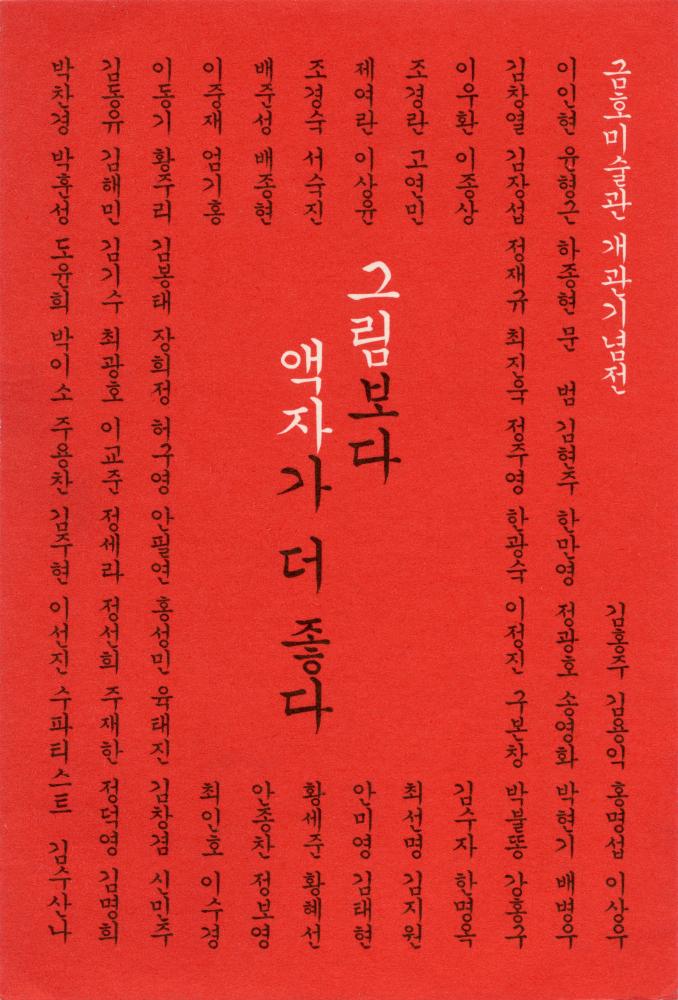 금호미술관 개관기념전
김홍주 김용익 홍명섭 이상우
이인현 윤형근 하종현 문 범 김현주 한만영 정광호 송영화 박현기 배병우
김창열 김장섭 정재규 최진욱 정주영 한광숙 이정진 구본창 박불똥 강홍구
이우환 이종상
김수자 한명옥
조경란 고연민
최선명 김지원
제여란 이상윤
안미영 김태현
그림보다
액자가 더 좋다
조경숙 서숙진
황세준 황혜선
배준성 배종현
안종찬 정보영
이중재 엄기홍
최인호 이수경
이동기 황주리 김봉태 장희정 허구영 안필연 홍성민 육태진 김창겸 신민주
김동유 김해민 김기수 최광호 이교준 정세라 정선희 주재한 정덕영 김명희
박찬경 박훈성 도윤희 박이소 주용찬 김주현 이선진 수파티스트 김수산나